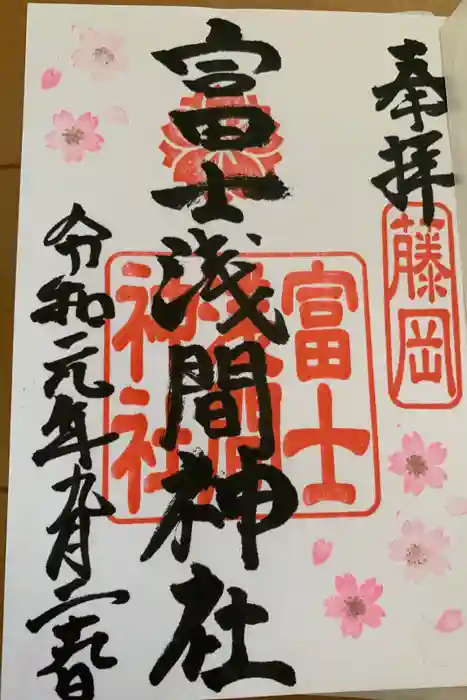 奉拝
藤岡
富士浅間神社
富士
神社
令和元年九月二日